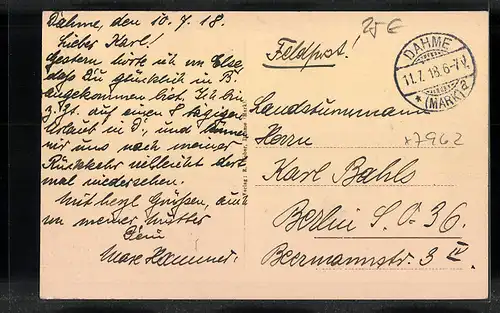 Dahme, den 10.7.18.
Lieber Karl!
Gestern hörte ich von Else
daß Du glücklich in B.
angekommen bist. Ich bin
z. Zt. auf einen 8 tägigen
Urlaub in D., und können
wir uns nach meiner
Rückkehr vielleicht dort
mal wiedersehen.
Mit herzl. Grüßen, auch
von meiner Mutter
Dein
Max Hammer.
25 €
Feldpost!
DAHME
11.7.18.6-7V.
* (MARK) a
Landsturmmann
Herrn
+7962
Karl Bahls
Berlin S.O. 36.
Beermannstr. 3 IV